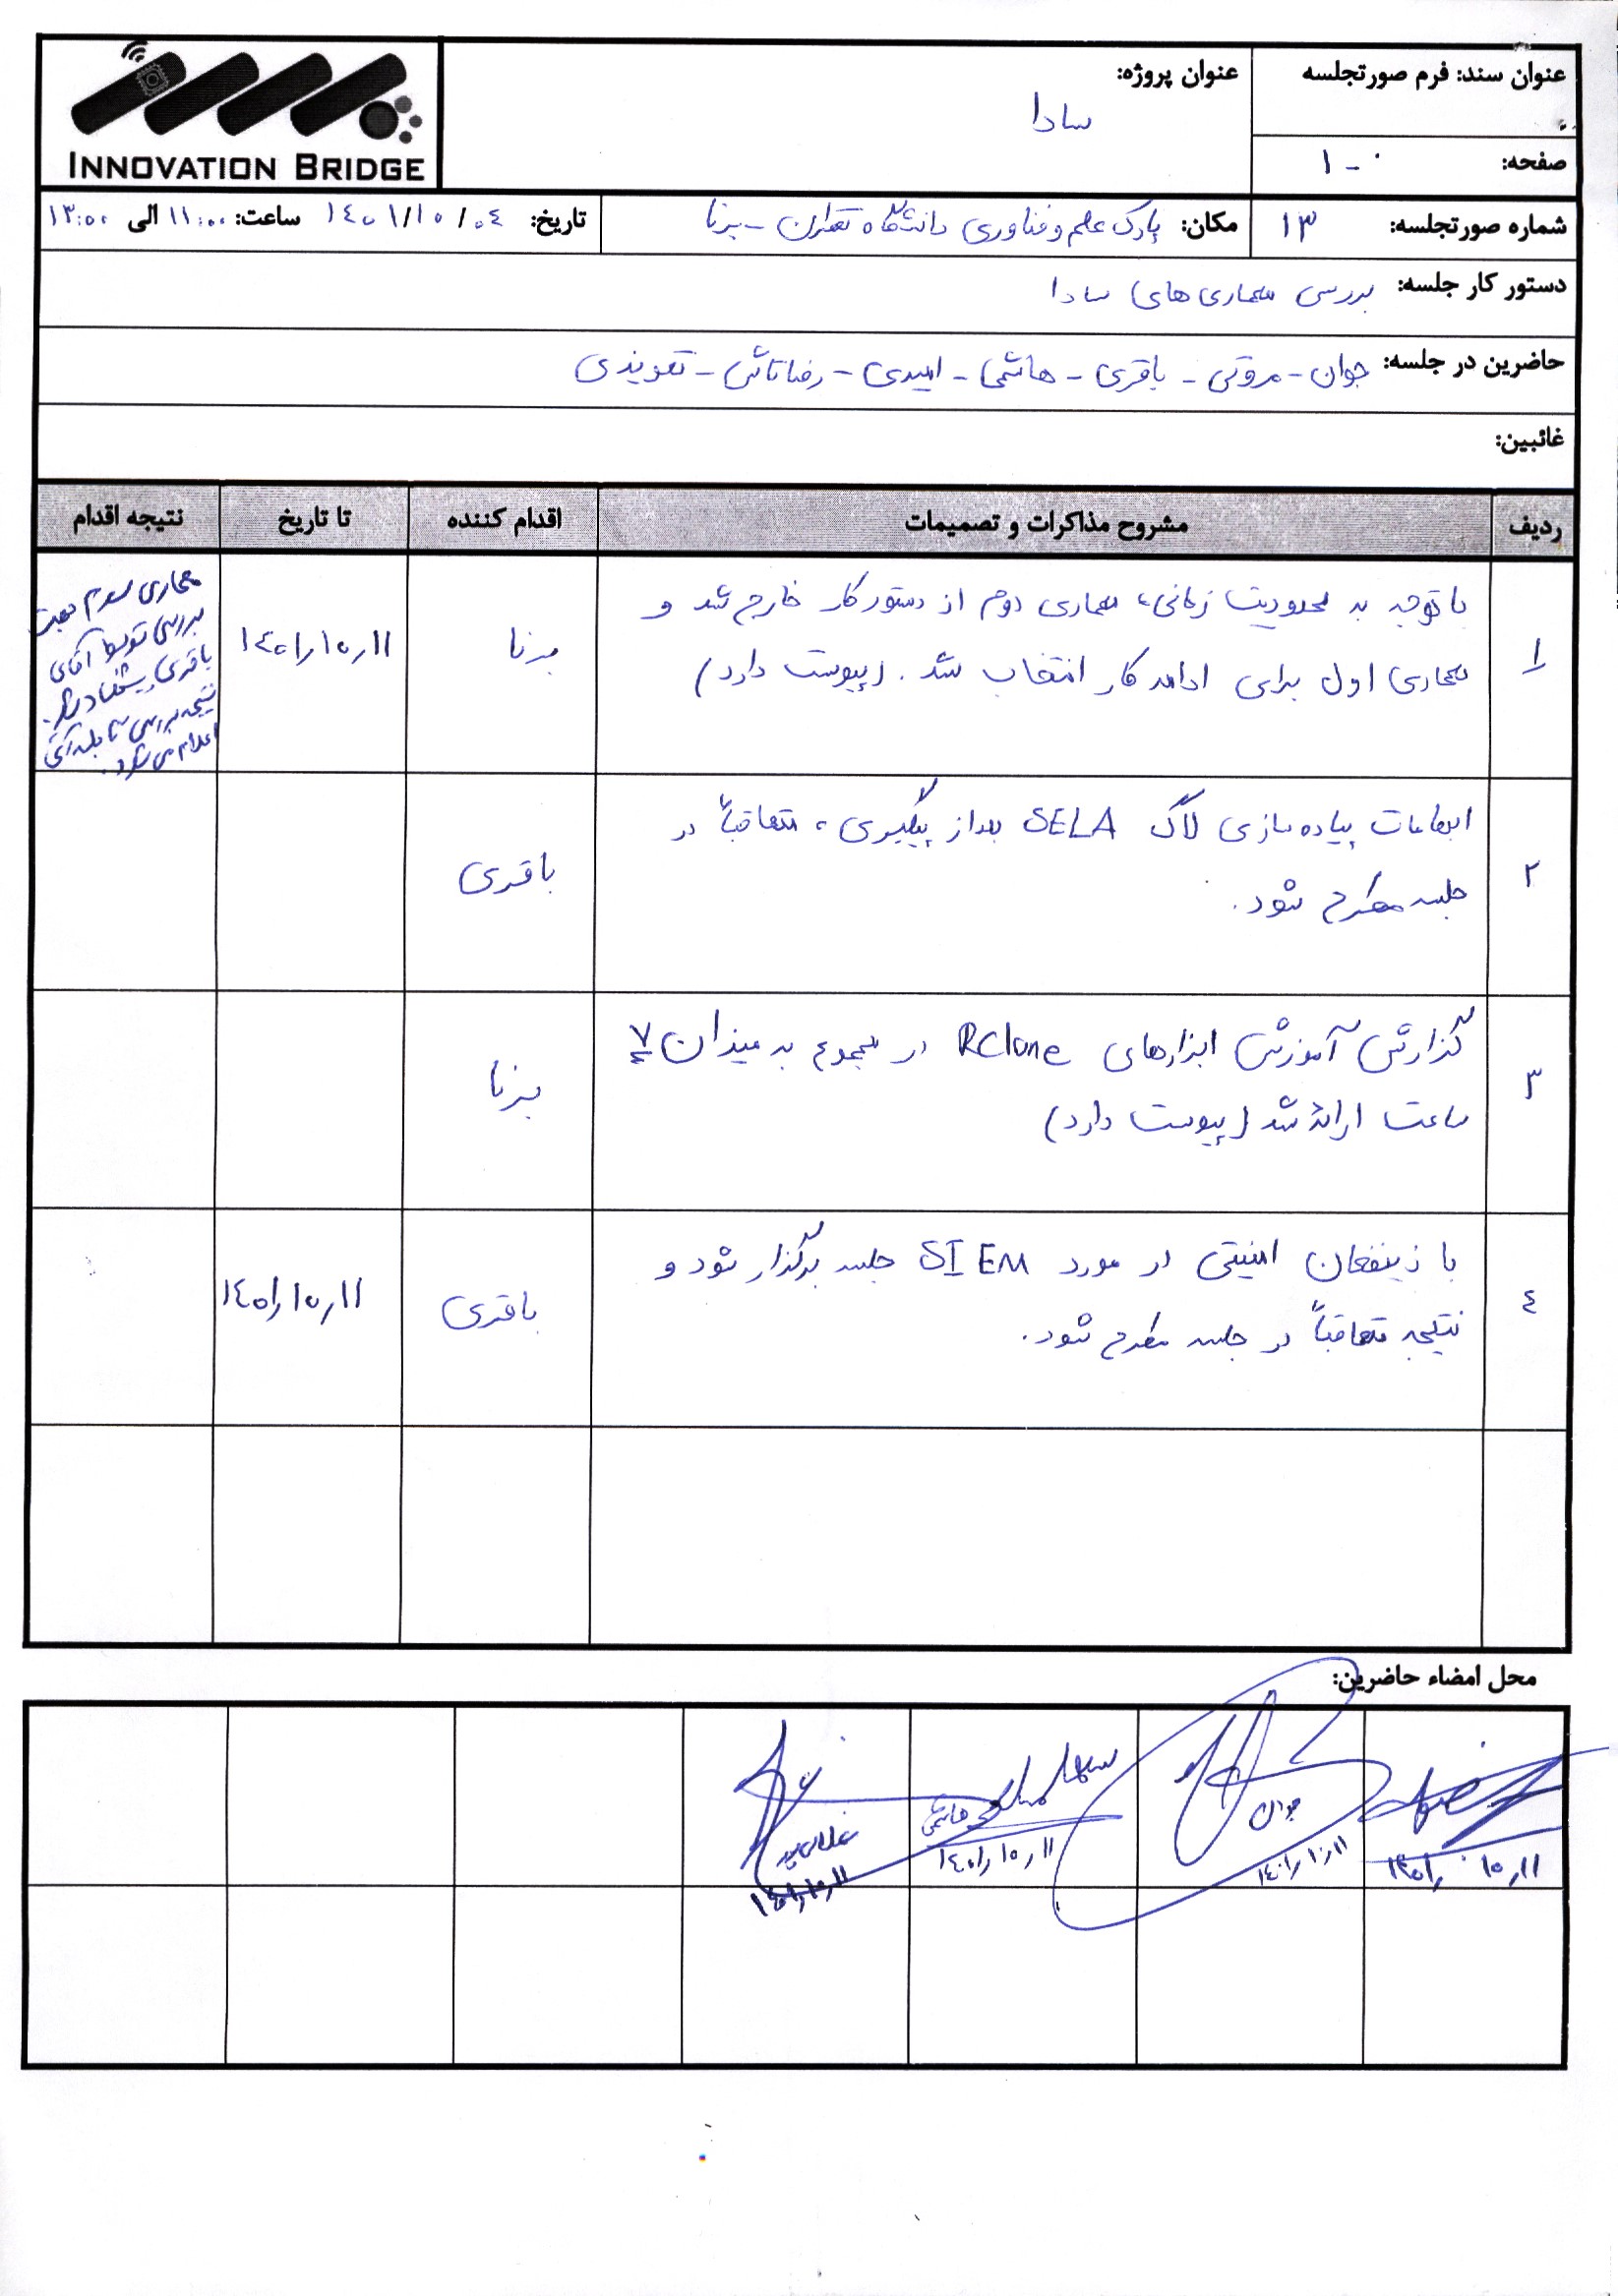 INNOVATION BRIDGE
عنوان سند: فرم صورتجلسه
عنوان پروژه:
سادا
صفحه: ۱ - ۰
شماره صورتجلسه: ۱۳
مکان: پارک علم و فناوری دانشگاه تهران - برنا
تاریخ: ۱۴۰۱/۱۰/۰۴ ساعت: ۱۱:۰۰ الی ۱۳:۰۰
دستور کار جلسه: بررسی معماری های سادا
حاضرین در جلسه: جوان - مروتی - باقری - هاشمی - امیدی - رضاتاش - تعویذی
غائبین:
ردیف مشروح مذاکرات و تصمیمات اقدام کننده تا تاریخ نتیجه اقدام
۱
با توجه به محدودیت زمانی، معماری دوم از دستور کار خارج شد و
معماری اول برای ادامه کار انتخاب شد. (پیوست دارد)
برنا
۱۴۰۱/۱۰/۱۱
معماری سوم جهت
بررسی توسط آقای
باقری پیشنهاد شد.
نتیجه بررسی تا جلسه آتی
اعلام می شود.
۲
ابهامات پیاده سازی لاگ SELA بعد از پیگیری، متعاقباً در
جلسه مطرح شود.
باقری
۳
گزارش آموزش ابزارهای RClone در مجموع به میزان ۷
ساعت ارائه شد (پیوست دارد)
برنا
۴
با ذینفعان امنیتی در مورد SIEM جلسه برگزار شود و
نتیجه متعاقباً در جلسه مطرح شود.
باقری
۱۴۰۱/۱۰/۱۱
محل امضاء حاضرین:
۱۴۰۱/۱۰/۱۱
جوان
۱۴۰۱/۱۰/۱۱
هاشمی
۱۴۰۱/۱۰/۱۱
۱۴۰۱/۱۰/۱۱